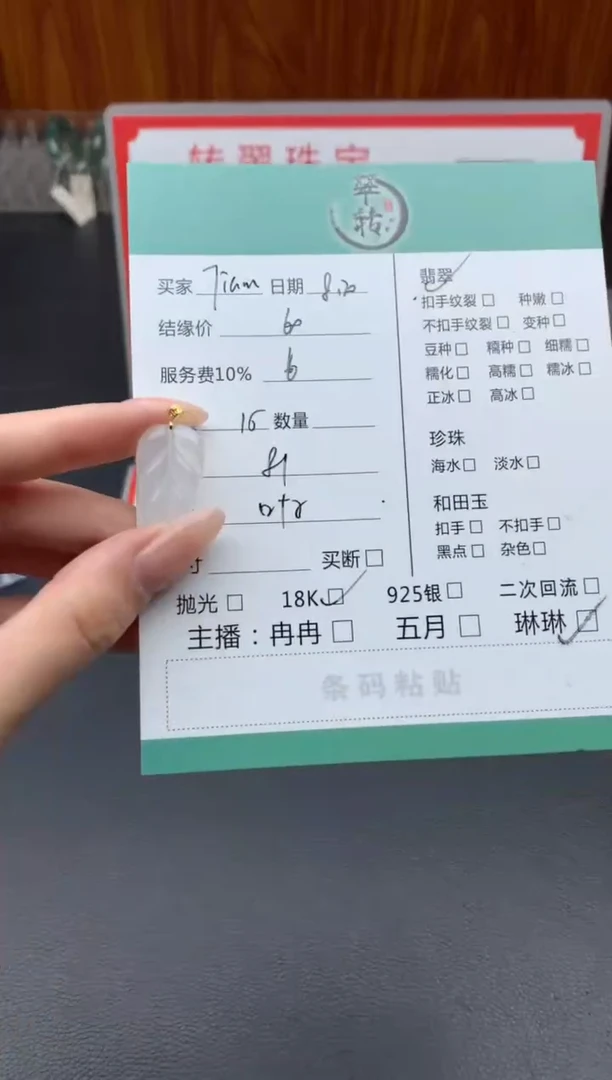 转翠珠宝
翠
转
买家 Tian 日期 8.20
结缘价 60
服务费10% 6
16 数量
买断
抛光 18K 925银 二次回流
主播：冉冉 五月 琳琳
条码粘贴
翡翠
扣手纹裂 种嫩
不扣手纹裂 变种
豆种 糯种 细糯
糯化 高糯 糯冰
正冰 高冰
珍珠
海水 淡水
和田玉
扣手 不扣手
黑点 杂色